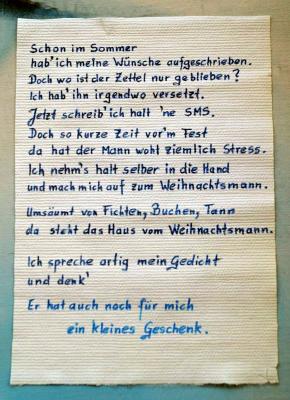 Schon im Sommer
hab' ich meine Wünsche aufgeschrieben.
Doch wo ist der Zettel nur geblieben?
Ich hab' ihn irgendwo versetzt.
Jetzt schreib' ich halt 'ne SMS.
Doch so kurze Zeit vor'm Fest
da hat der Mann wohl ziemlich Stress.
Ich nehm's halt selber in die Hand
und mach mich auf zum Weihnachtsmann.
Umsäumt von Fichten, Buchen, Tann
da steht das Haus vom Weihnachtsmann.
Ich spreche artig mein Gedicht
und denk'
Er hat auch noch für mich
ein kleines Geschenk.